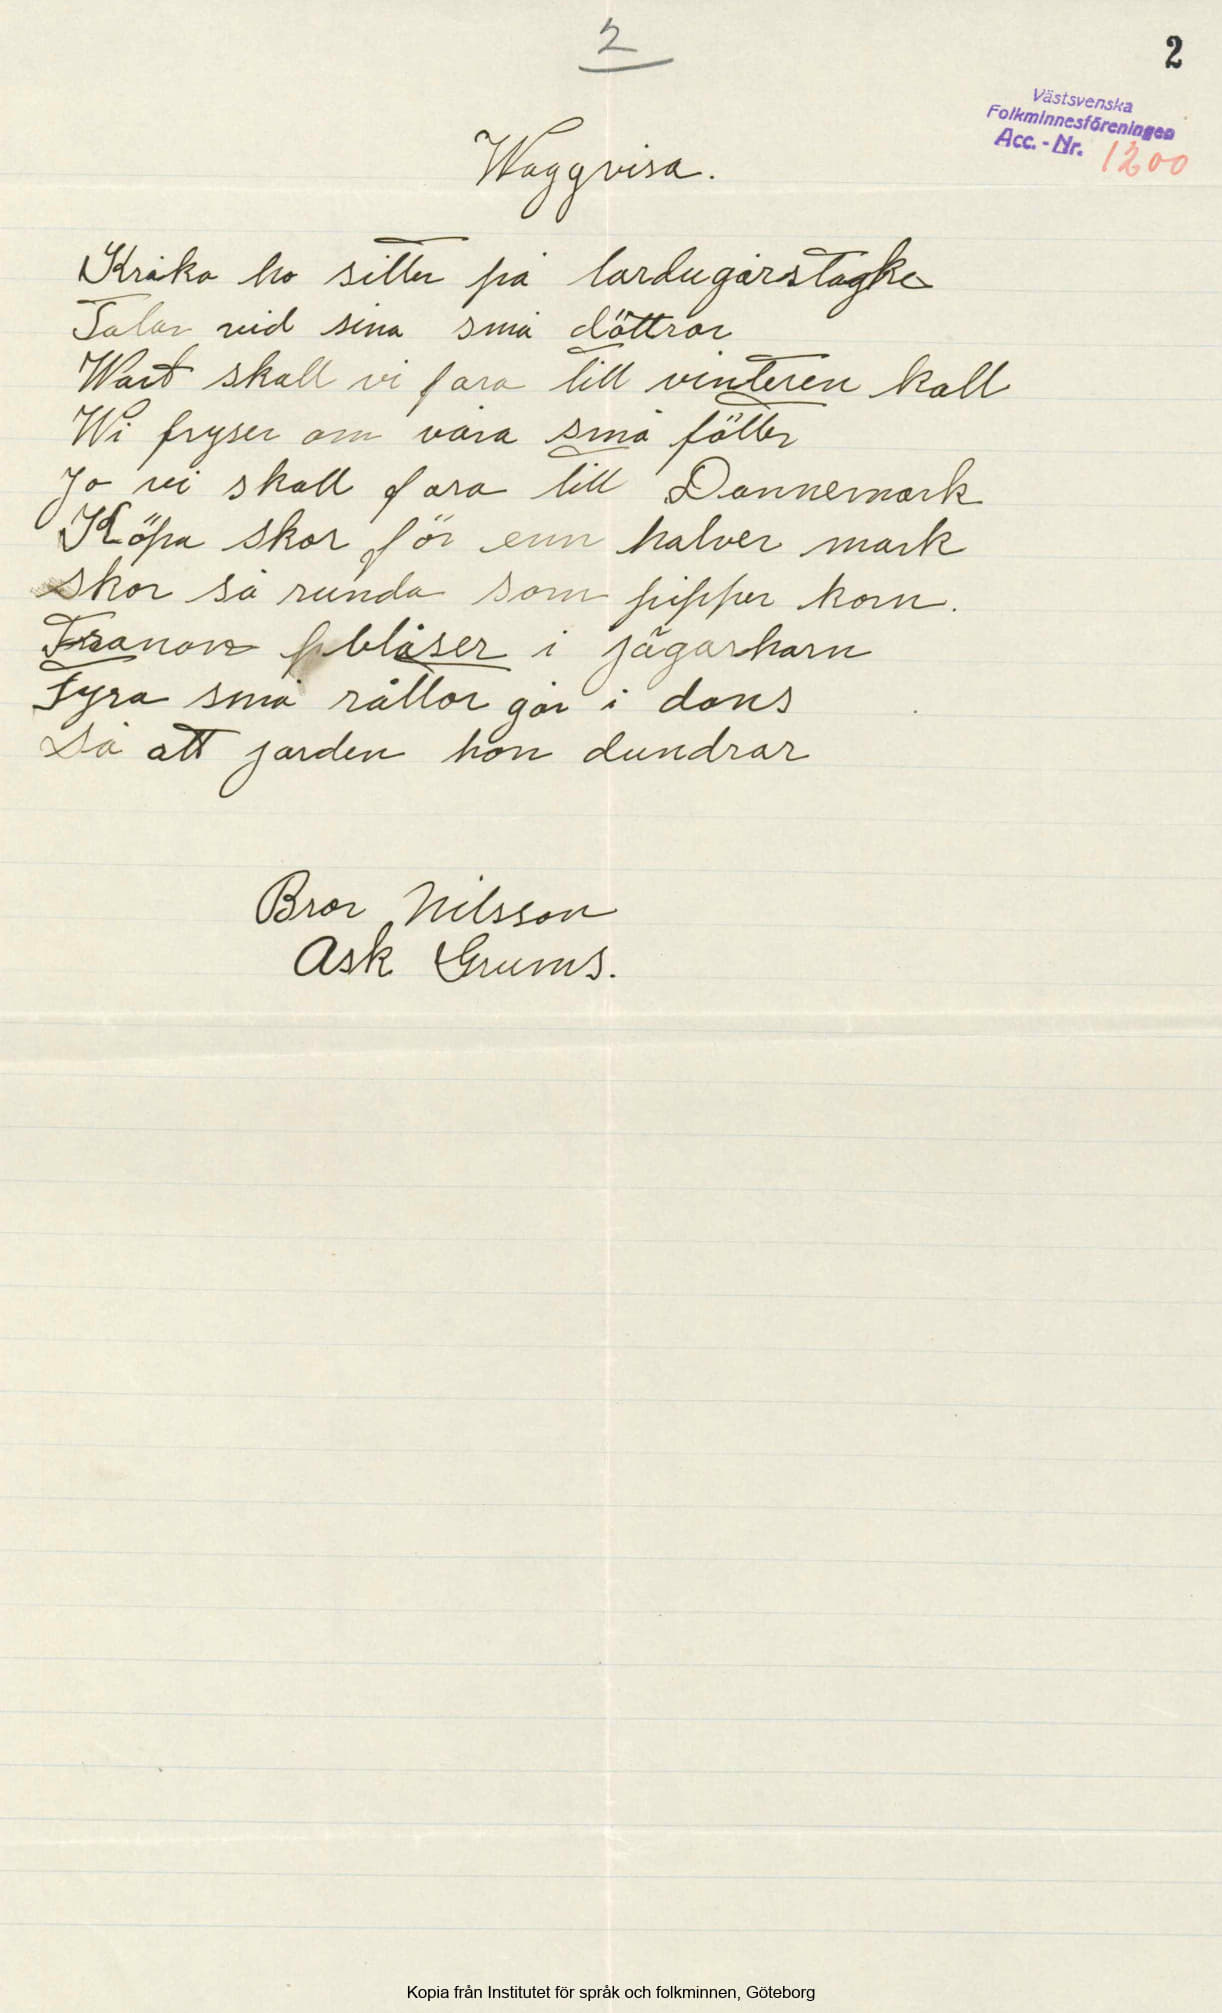 2
2
Västsvenska
Folkminnesföreningen
Acc.-Nr. 1200
Waggvisa.
Kråka ho sitter på lardugårstagke
Talar vid sina små döttrar
Wart skall vi fara till vinteren kall
Wi fryser om våra små fötter
Jo vi skall fara till Dannemark
Köpa skor för enn halver mark
skor så runda som pipper korn.
Tranan blåser i jägarharn
Fyra små råttor går i dans
Så att jorden hon dundrar
Bror Nilsson
Ask Grums.
Kopia från Institutet för språk och folkminnen, Göteborg